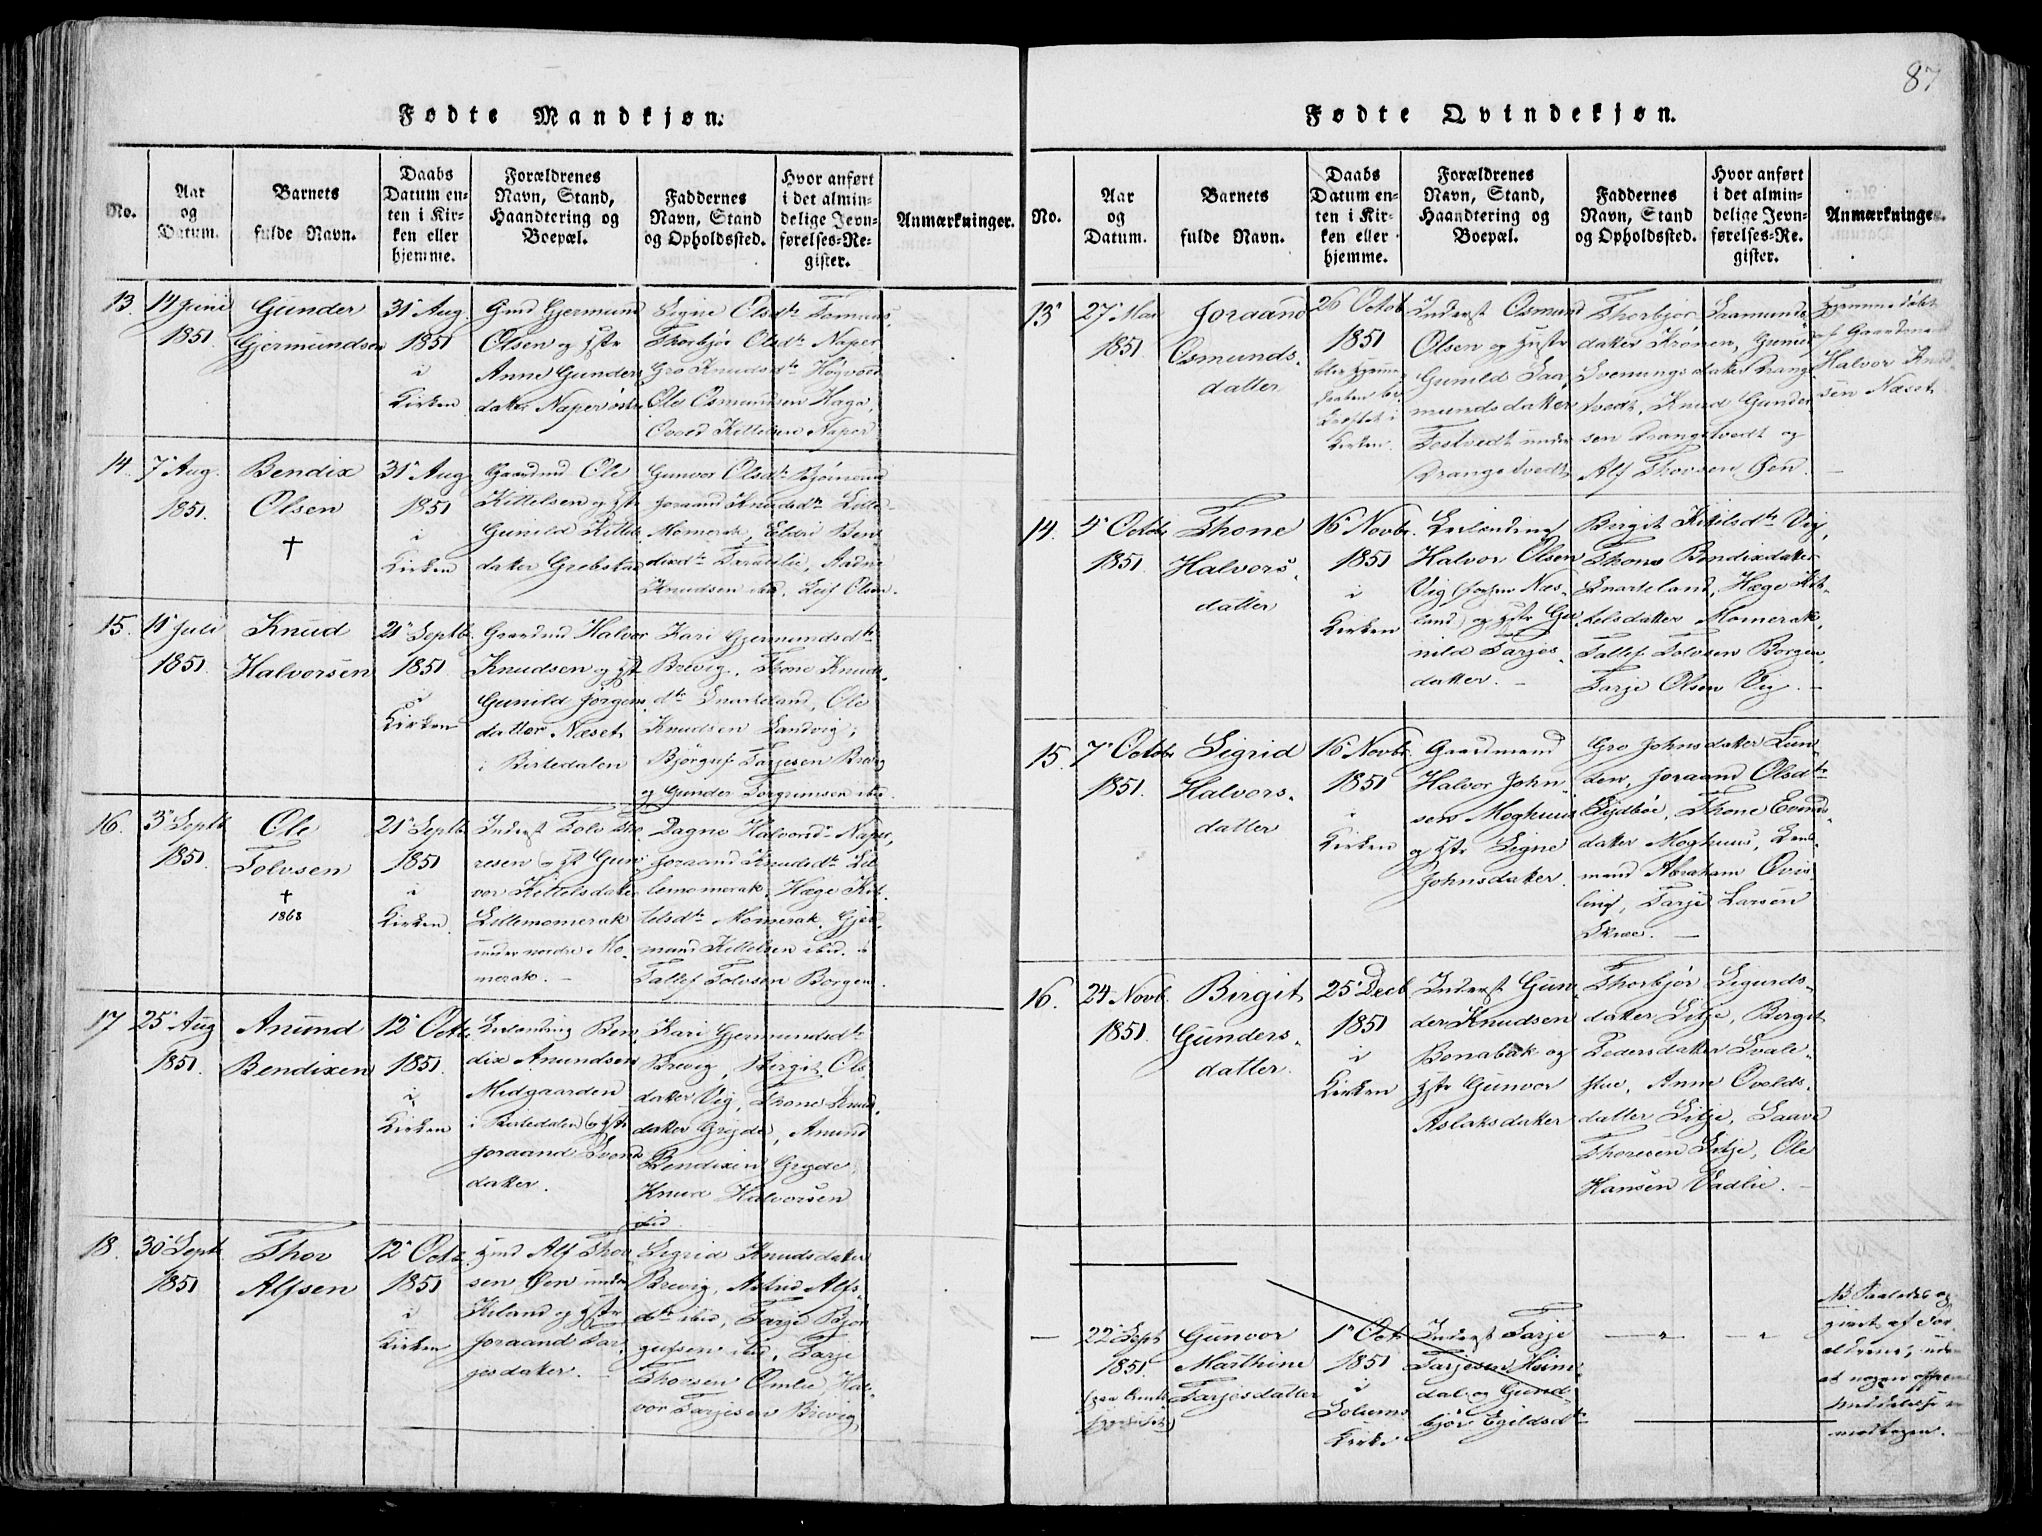 87
Fødte Mandkjøn.
No.
Aar
og
Datum.
Barnets
fulde Navn.
Daabs
Datum en-
ten i Kir-
ken eller
hjemme.
Forældrenes
Navn, Stand,
Haandtering og
Boepæl.
Faddernes
Navn, Stand
og Opholdssted.
Hvor anført
i det almin-
delige Jevn-
førelses-Re-
gister.
Anmærkninger.
13.
14 Juni
1851
Gunder
Gjermundsen
31 Aug.
1851
i
Kirken
Gmd Gjermund
Olsen og Hstr
Anne Gunders
datter Naper
Signe Olsdtr
Thorbjør Olsdtr Naper
Gro Knudsdtr Høgvold
Ole Osmundsen Haga,
Kittelsen Naper
14.
7 Aug.
1851.
Bendix
Olsen
†
31 Aug
1851
i
Kirken
Gaardmd Ole
Kittelsen og Hstr
Gunild Kittels
datter Grebstad
Gunvor Olsdtr
Joraand Knudsdtr Lille
Momerak, Eldri Ben
dixdtr
Knudsen ibd, Leif Olsen.
15.
11 Juli
1851.
Knud
Halvorsen
21 Septb.
1851
i
Kirken
Gaardmd Halvor
Knudsen og Hst
Gunild Jørgens
datter Næset
i Birtedalen
Kari Gjermundsdtr
Brevig, Thone Knuds
dtr Snarteland, Ole
Knudsen Sandvig,
Bjørguf Tarjesen Brevig
og Gunder Torgrimsen ibd.
16.
3 Septb
1851.
Ole
Tolvsen
†
1868
21 Septb.
1851
i
Kirken
Inderst Tolv Tho
resen og Hst Gun
vor Kittelsdatter
Lillemomerak
under nordre Mo
merak.
Dagne Halvorsd Naper,
Joraand Knudsdtr Lil
lemomerak, Hæge Kit
telsdtr Momerak, Gjer
mund Kittelsen ibid. og
Tallef Tolvsen Borgen.
17
25 Aug
1851.
Anund
Bendixen
12 Octb.
1851.
i
Kirken
Ben
dix Anundsen
Midgaarden
i Birtedalen og Hstr
Joraand Svends
datter.
Kari Gjermundsdtr
Brevig, Birgit Ols
datter Vig, Thone Knuds
datter Grjde, Anund
Bendixen Grjde
Knud Halvorsen
ibid
18.
30 Septb
1851
Thor
Alfsen
12 Octb.
1851
i
Kirken
Hmd Alf Thor
sen Øen under
Kiland og Hstr
Joraand Tar
jesdatter.
Sigrid Knudsdatter
Brevig, Astrid Alfs
dtr ibid, Tarje Bjør
gufsen ibd, Tarje
Thorsen Omlie, Hal
vor Tarjesen Brevig
Fødte Qvindekjøn.
No.
Aar
og
Datum.
Barnets
fulde Navn.
Daabs
Datum en-
ten i Kir-
ken eller
hjemme.
Forældrenes
Navn, Stand,
Haandtering og
Boepæl.
Faddernes
Navn, Stand
og Opholdssted.
Hvor anført
i det almin-
delige Jevn-
førelses-Re-
gister.
Anmærkninge
13
27 Mai
1851
Joraand
Osmunds-
datter
26 Octob
1851
blev hjemme
daaben be
kræftet i
Kirken.
Inderst Osmund
Olsen og Hustr
Gunild Saa
mundsdatter
Tostvedt under
Drangstvedt
Thorbjør Saamunds
datter Krønen, Gunild
Svenungsdatter Drangs
tvedt, Knud Gunder
sen Drangstvedt og
Alf Thorsen Øen.
Hjemmedøbt
af Gaardmand
Halvor Knud
sen Næset
14.
5 Octobr
1851.
Thone
Halvors-
datter
16 Novbr.
1851
i
Kirken
Halvor Olsen
Vig Næs-
land og Hstr Gu
nild Tarjes
datter.
Birgit Kittilsdtr Vig,
Thone Bendixdatter
Snarteland, Hæge Kit-
telsdatter Momerak,
Tallef Tolvsen Borgen,
Tarje Olsen Vig.
15.
7 Octobr
1851.
Sigrid
Halvors-
datter
16 Novbr.
1851
i
Kirken
Gaardmand
Halvor John
sen Moghuus
og Hstr Signe
Johnsdatter.
Gro Johnsdatter Lun
den, Joraand Olsdtr
Sydbøe, Thone Evinds
datter Moghuus, Lens
mand Abraham Qvis
ling, Tarje Larsen
Skree.
16.
24 Novb.
1851.
Birgit
Gunders-
datter.
25 Decb
1851
i
Kirken
Inderst Gun
der Knudsen
Bonabak og
Hstr Gunvor
Aslaksdatter
Thorbjør Sigurds-
datter Sitje, Birgit
Pedersdatter Svale-
stue, Anne Qvolds-
datter Sitje, Saave
Thoresen Sitje, Ole
Hansen Vadlie.
22 Sept
1851.
Gunvor
Marthine
Tarjesdatter
1 Oct.
1851
i
Solums
Kirke
Inderst Tarje
Tarjesen Heim
dal og Gund-
bjør Egildsdtr
NB
givet af For
ældrene, uden
at nogen offi
middelelse er
modtagen.